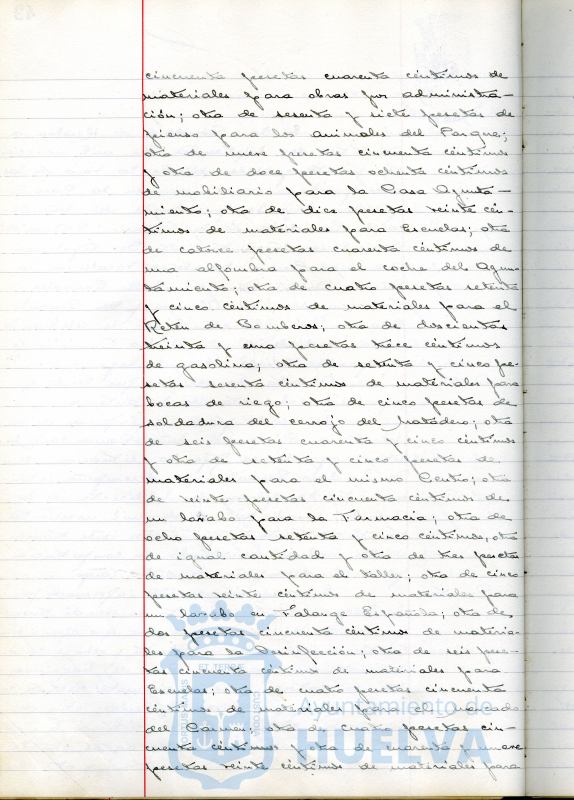 cincuenta pesetas cuarenta céntimos de
materiales para obras por administra-
ción; otra de sesenta y siete pesetas de
pienso para los animales del Parque;
otra de nueve pesetas cincuenta céntimos
y otra de doce pesetas ochenta céntimos
de mobiliario para la Casa Ayunta-
miento; otra de diez pesetas veinte cén-
timos de materiales para Escuelas; otra
de catorce pesetas cuarenta céntimos de
una alfombra para el coche del Ayun-
tamiento; otra de cuatro pesetas setenta
y cinco céntimos de materiales para el
Retén de Bomberos; otra de doscientas
treinta y una pesetas trece céntimos
de gasolina; otra de setenta y cinco pe-
setas sesenta céntimos de materiales para
bocas de riego; otra de cinco pesetas de
soldadura del cerrojo del Matadero; otra
de seis pesetas cuarenta y cinco céntimos
y otra de setenta y cinco pesetas de
materiales para el mismo Centro; otra
de veinte pesetas cincuenta céntimos de
un lavabo para la Farmacia; otra de
ocho pesetas setenta y cinco céntimos, otra
de igual cantidad y otra de tres pesetas
de materiales para el taller; otra de cinco
pesetas veinte céntimos de materiales para
un lavabo en Falange Española; otra de
dos pesetas cincuenta céntimos de materia-
les para la Desinfección; otra de seis pese-
tas cincuenta céntimos de materiales para
Escuelas; otra de cuatro pesetas cincuenta
céntimos de materiales para el Mercado
del Carmen; otra de cuatro pesetas cin-
cuenta céntimos y otra de cuarenta y nueve
pesetas veinte céntimos de materiales para
Ayuntamiento de
HUELVA